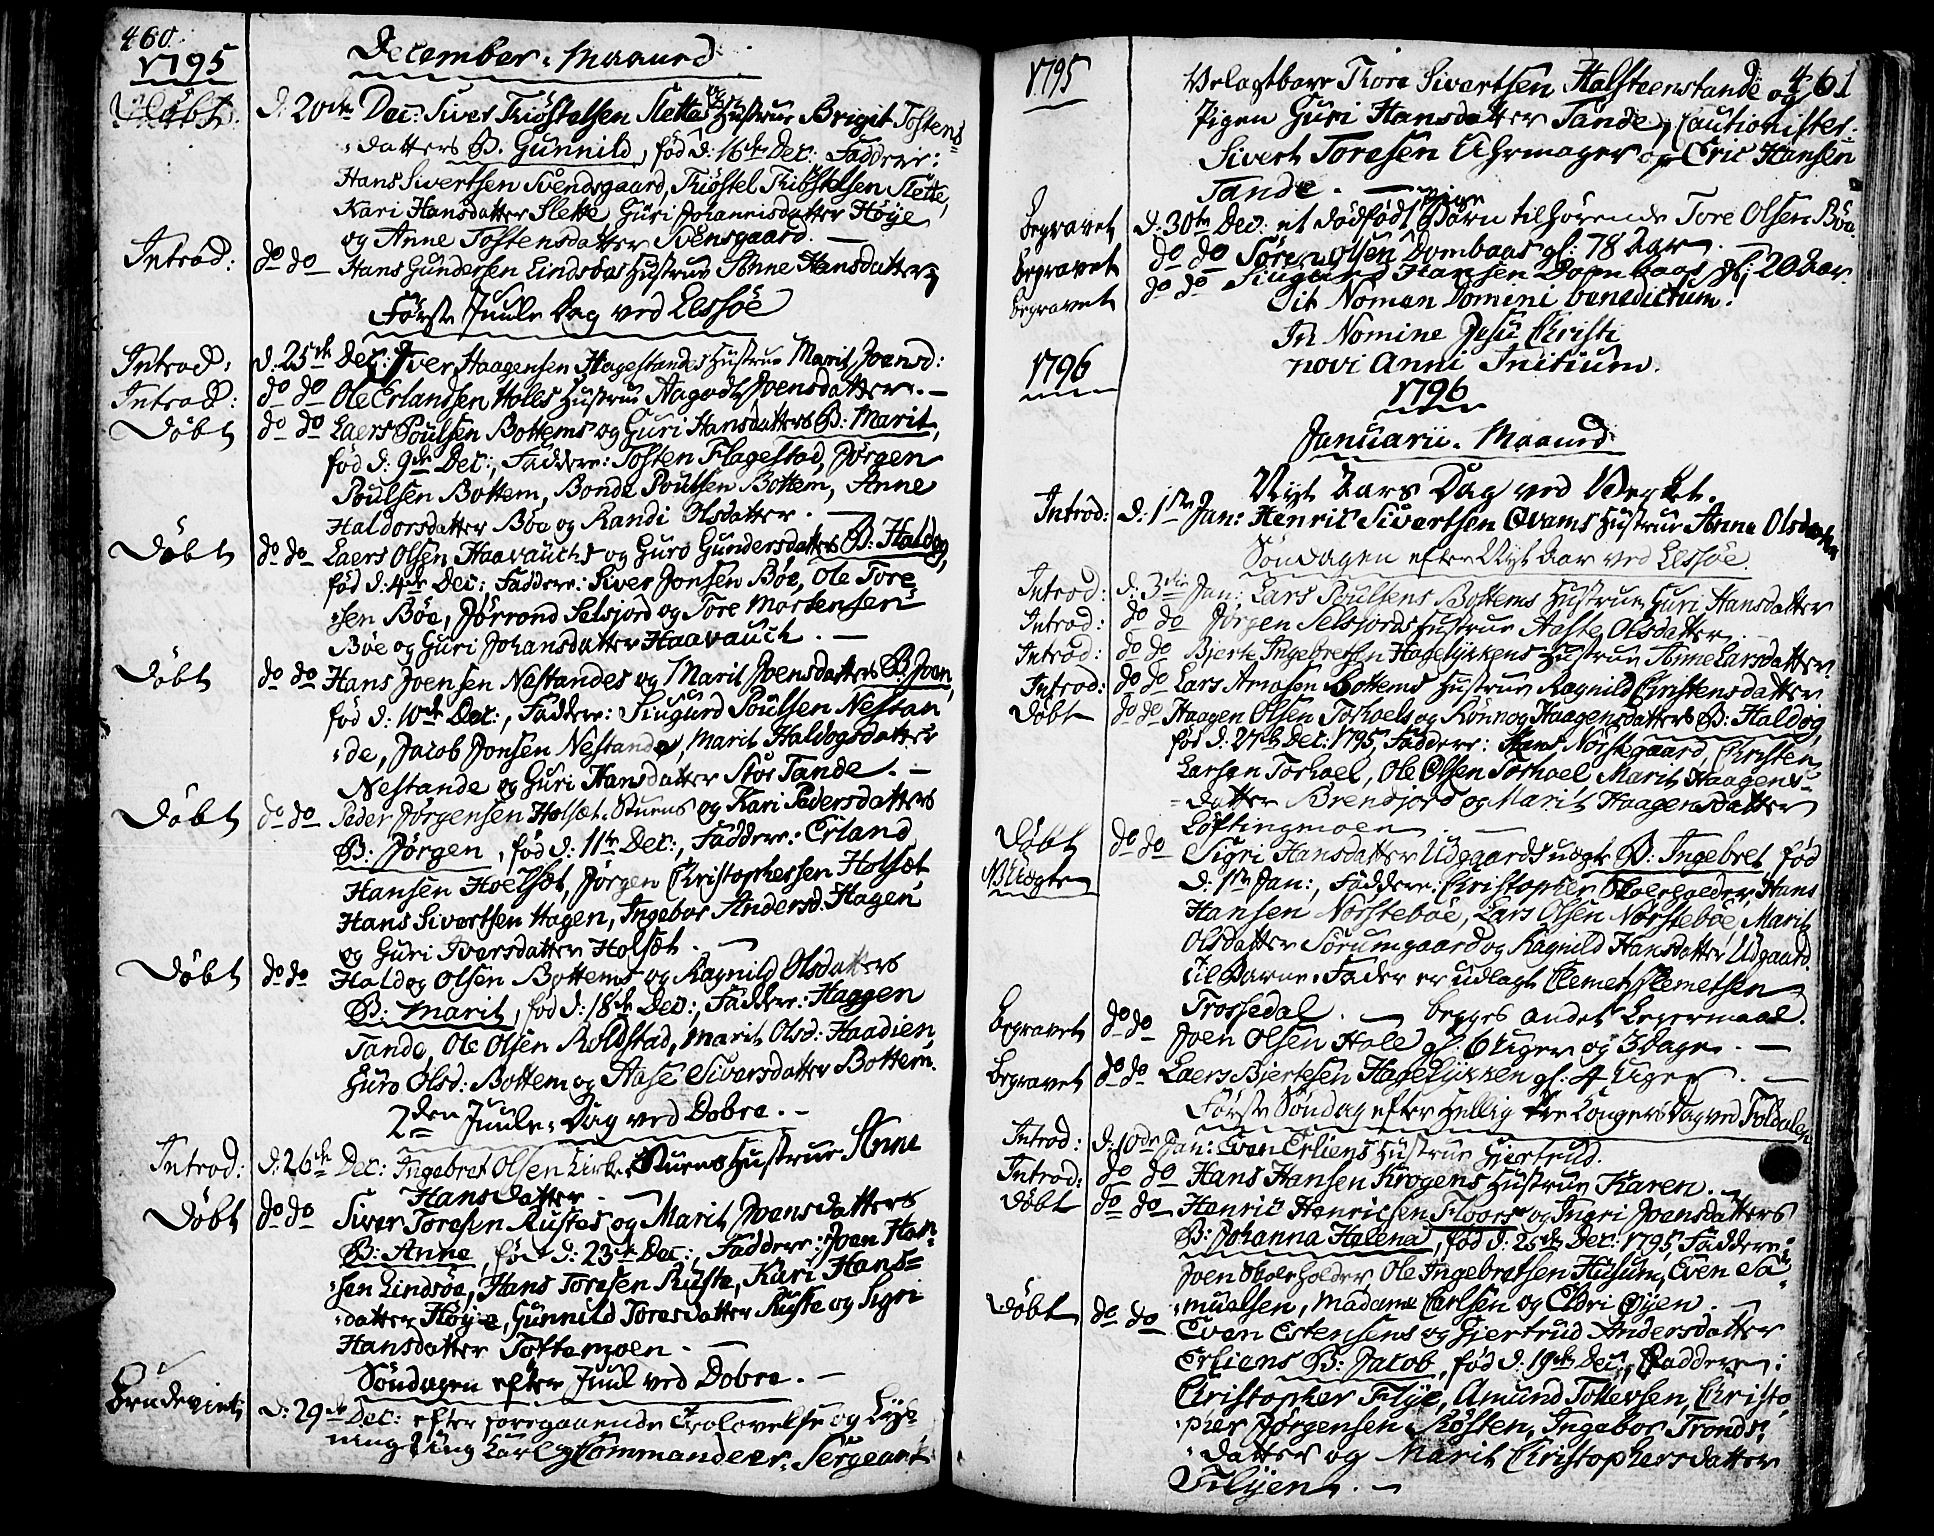 460.
1795
December-Maaned
Döbt. d: 20de Dec: Siver Thiøstelsen Slettes og Hustrue Brigit Tostens
datters B. Gunnild, fød d: 16de Dec: Faddere:
Hans Sivertsen Svendsgaard, Thiøstel Thiøstelsen Slette,
Kari Hansdatter Slette Guri Johannisdatter Høye
og Anne Tostensdatter Svensgaard.
Introd: do do Hans Gundersen Lindsöes Hustrue Anne Hansdatter
Første Juule Dag ved Lessöe
Introd: d: 25de Dec: Iver Haagensen Hagestandes Hustrue Marit Joensd:
Introd: do do Ole Erlandsen Holes Hustrue Aagodt Joensdatter.
Döbt do do Laers Poulsen Bottems og Guri Hansdatters B: Marit,
fød d: 9de Dec:, Faddere: Tosten Flagestad, Jørgen
Poulsen Bottem, Bonde Poulsen Bottem, Anne
Haldorsdatter Böe og Randi Olsdatter.
Döbt do do Laers Olsen Haavauchs og Guro Gundersdatters B: Haldog,
fød d: 4de Dec: Faddere: Siver Jonsen Böe, Ole Tore
sen Böe, Jörrond Selsjord og Tore Mortensen
Böe og Guri Johansdatter Haavauch.
Döbt do do Hans Joensen Nestandes og Marit Joensdatters B: Joen,
fød d: 10de Dec:, Faddere: Siugurd Poulsen Nestan
de, Jacob Jonsen Nestande, Marit Haldogsdatter
Nestande og Guri Hansdatter Stor Tande.
Döbt do do Peder Jørgensen Holsæt-Stuens og Kari Pedersdatters
B: Jørgen, fød d: 11te Dec:, Faddere: Erland
Hansen Hoelsæt, Jørgen Christophersen Holsæt
Hans Sivertsen Hagen, Ingebor Andersd: Hagen
og Guri Iversdatter Holsæt.
Döbt do do Haldog Olsen Bottems og Ragnild Olsdatters
B: Marit, fød d: 18de Dec:, Faddere: Haagen
Tande, Ole Olsen Roldstad, Marit Olsd: Haadien
Guro Olsd: Bottem og Aase Siversdatter Bottem.
2den Juule-Dag ved Dobre.
Introd: d: 26de Dec: Ingebret Olsen Kirke-Stuens Hustrue Anne
Hansdatter.
Döbt do do Siver Toresen Rustes og Marit Joensdatters
B: Anne, fød d: 23de Dec:, Faddere: Joen Han
sen Lindsöe, Hans Toresen Ruste, Kari Hans
datter Høye, Gunnild Toresdatter Ruste og Sigri
Hansdatter Toftemoen.
Söndagen efter Juul ved Dobre.
Brudeviet d: 29de Dec: efter foregaaende Trolovelse og Lys
ning Ung Karl og Commandeer-Sergeant
1795
461
Velagtbare Thore Sivertsen Halsteenstande og
Pigen Guri Hansdatter Tande, Cautionister
Sivert Toresen Uhrmager og Eric Hansen
Tande.
Begravet d: 30te Dec: et dødfødt Pige Barn tilhørende Tore Olsen Böe.
Begravet do do Sören Olsen Dombaas gl: 78 Aar.
Begravet do do Siugurd Hansen Dombaas gl: 20 Aar.
Sit Nomen Domini benedictum!
In Nomine Jesu Christi
novi Anni Initium.
1796
1796
Januarii-Maaned
Nyt Aars Dag ved Verket.
Introd: d: 1ste Jan: Henric Sivertsen Qvams Hustrue Anne Olsdatter
Söndagen efter Nyt Aar ved Lessöe.
Introd: d: 3die Jan: Lars Poulsens Bottems Hustrue Guri Hansdatter
Introd: do do Jørgen Selsjords Hustrue Aaste Olsdatter
Introd: do do Bjerte Ingebretsen Hagelykkens Hustrue Anne Larsdatter.
Introd: do do Lars Arnesen Bottems Hustrue Ragnild Christensdatter
Döbt do do Haagen Olsen Torhoels og Rönnog Haagensdatters B: Haldog,
fød d: 27de Dec: 1795, Faddere: Hans Norstegaard, Christen
Larsen Torhoel, Ole Olsen Torhoel Marit Haagens
datter Brensjord og Marit Haagensdatter
Löftingmoen.
Döbt do do Sigri Hansdatter Udgaards uægte B: Ingebret, fød
NB Uægte d: 1ste Jan:, Faddere: Christopher Skoleholder, Hans
Hansen Norsteböe, Lars Olsen Norsteböe, Marit
Olsdatter Sörumgaard og Ragnild Hansdatter Udgaard.
til Barne-Fader er udlagt Clemet Clemetsen
Trossedal. begges andet Legermaal.
Begravet do do Joen Olsen Hole gl: 6 Uger og 5 Dage.
Begravet do do Laers Bjertesen Hagelykken gl: 4 Uger.
Første Söndag efter Hellig tre Konger Dag ved Foldalen
Introd: d: 10de Jan: Even Erliens Hustrue Giertrud.
Introd: do do Hans Hansen Krogens Hustrue Karen.
Döbt do do Henric Henricsen Floors og Ingri Joensdatters
B: Johanna Helena, fød d: 25de Dec: 1795, Faddere:
Joen Skoleholder, Ole Ingebretsen Husum, Even Sa
muelsen, Madame Carlsen og Eldri Öyen.
Döbt do do Even Estensens og Giertrud Andersdatter
Erliens B: Jacob, fød d: 19de Dec:, Faddere:
Christopher Flye, Amund Tollevsen, Christo
pher Jørgensen Rösten, Ingebor Tronds
datter og Marit Christophersdatter
Flyen.